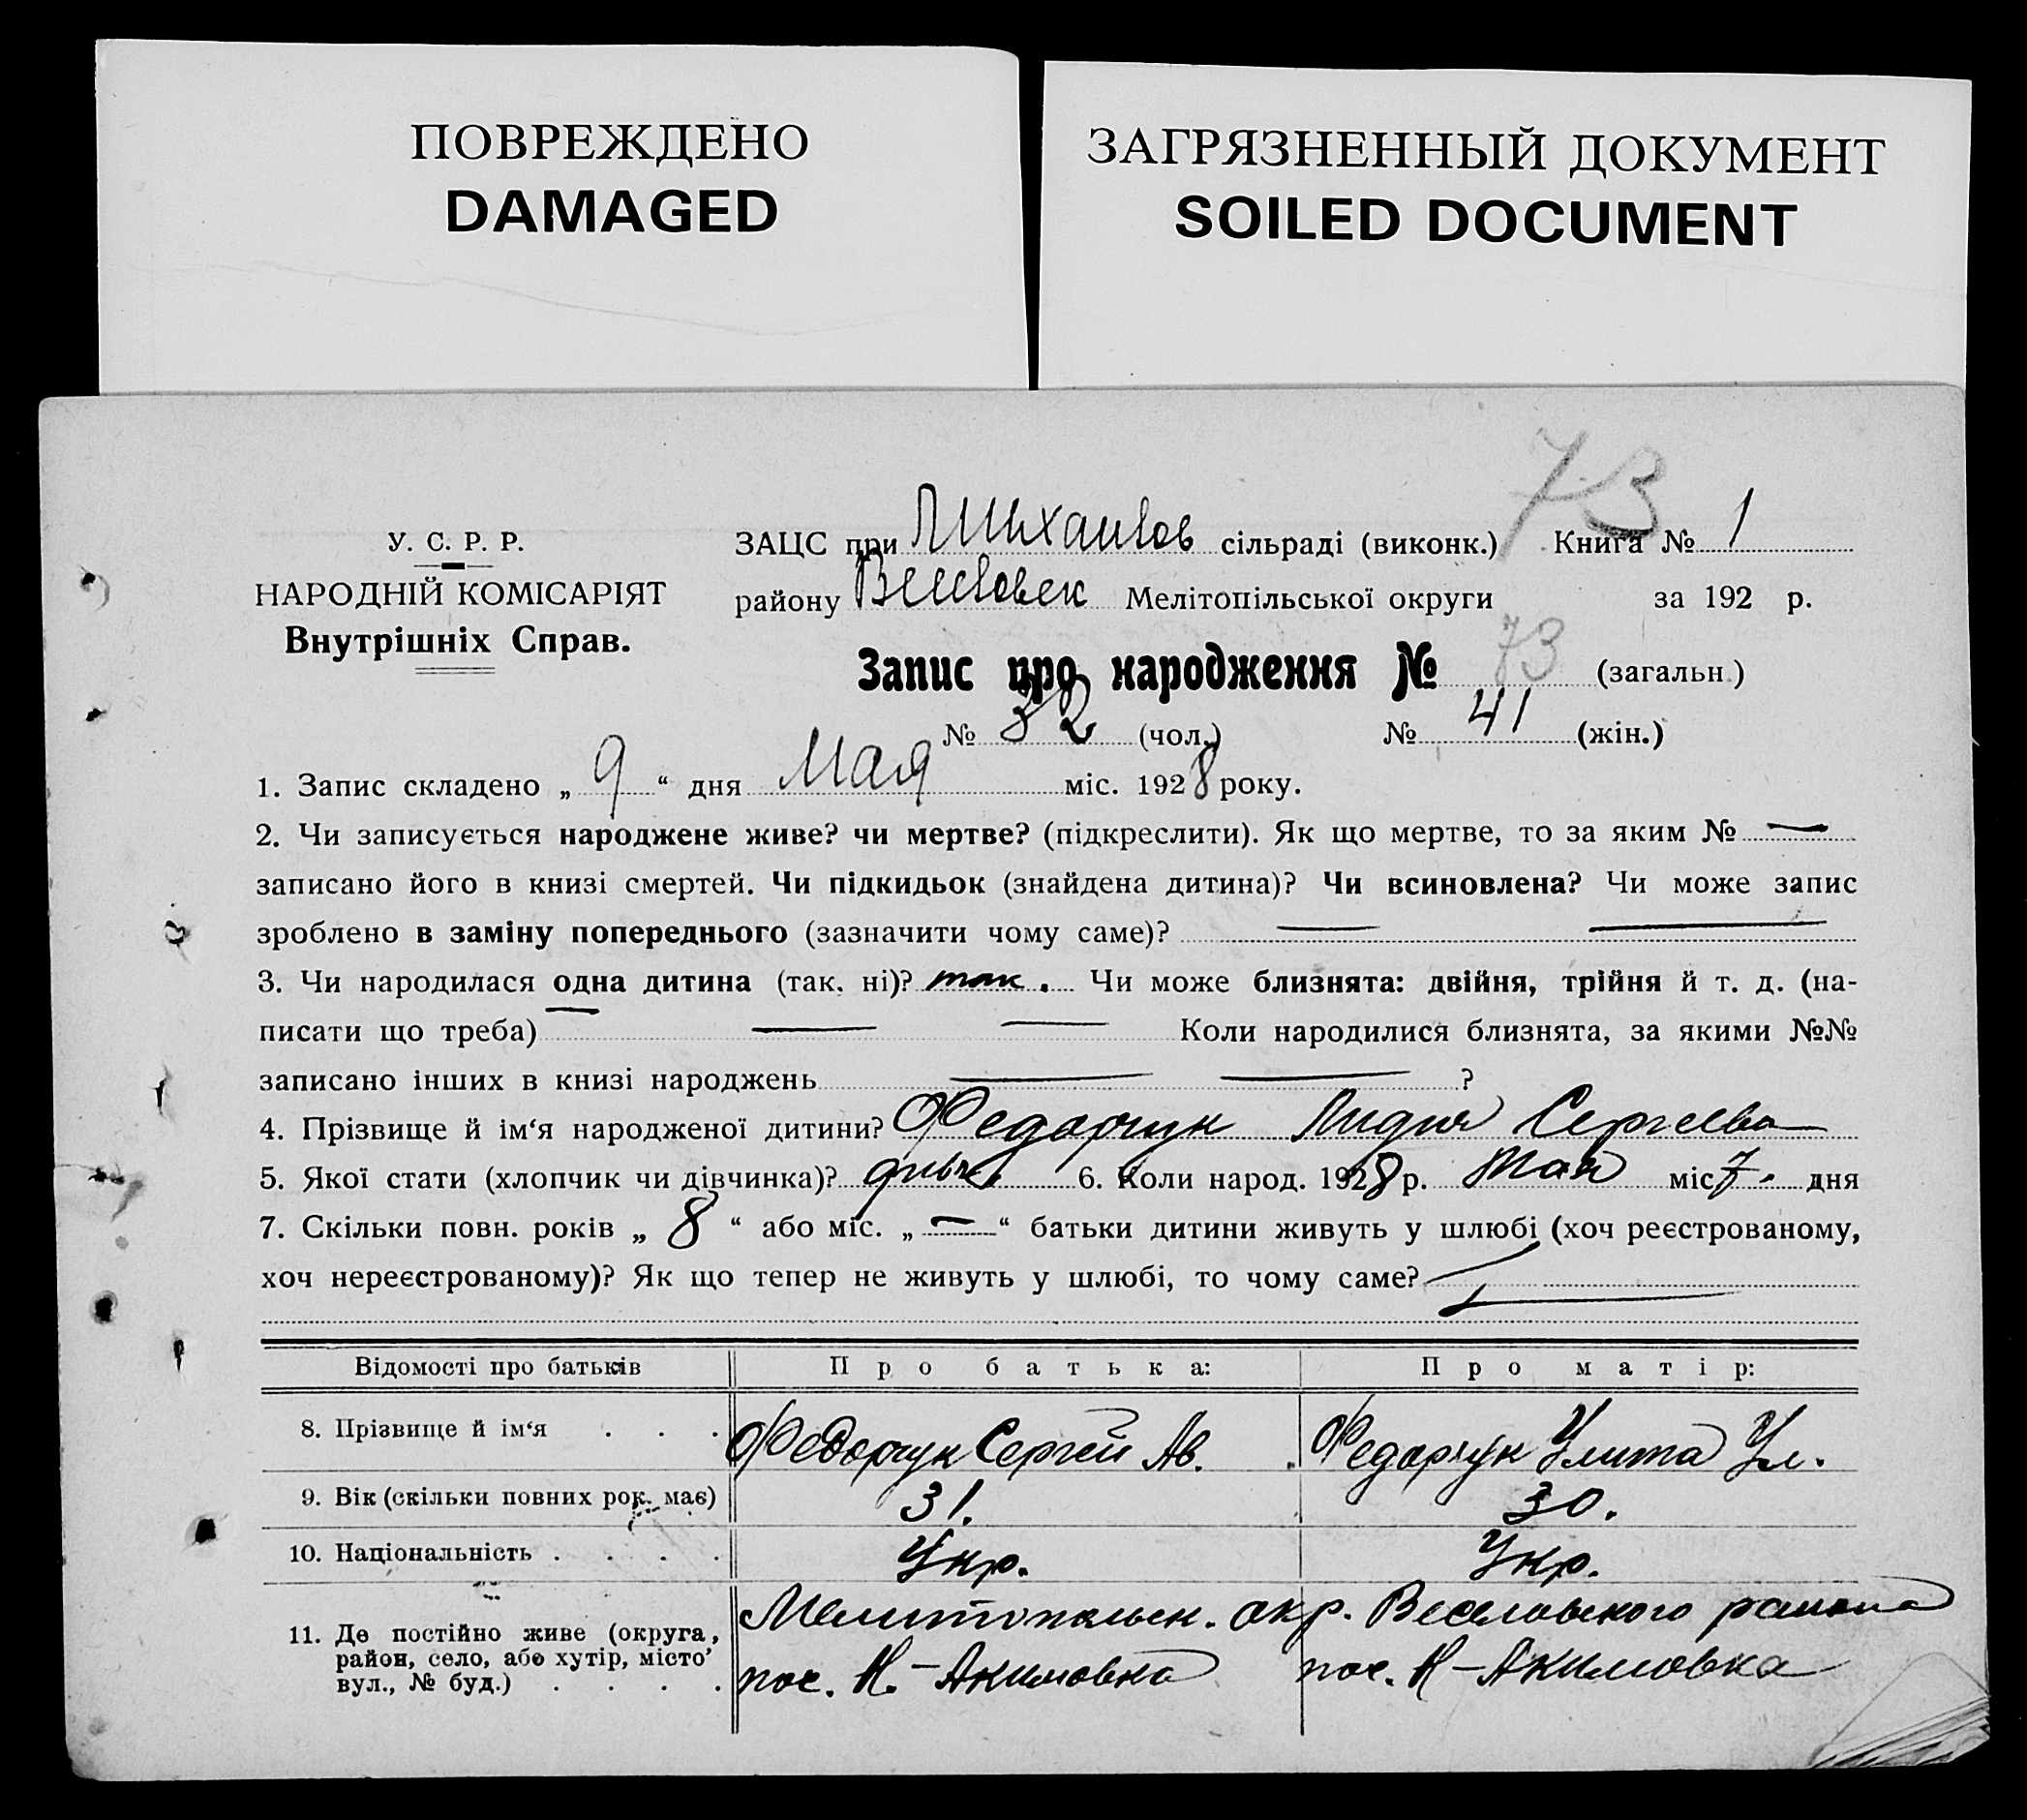 ПОВРЕЖДЕНО
DAMAGED
ЗАГРЯЗНЕННЫЙ ДОКУМЕНТ
SOILED DOCUMENT
73
У. С. Р. Р.
НАРОДНІЙ КОМІСАРІЯТ
Внутрішніх Справ.
ЗАЦС при сільраді (виконк.) Книга № 1
району Мелітопільської округи за 192 р.
Запис про народження № 73 (загальн.)
№ 32 (чол.) № 41 (жін.)
1. Запис складено „ 9 “ дня Мая міс. 1928 року.
2. Чи записується народжене живе? чи мертве? (підкреслити). Як що мертве, то за яким № —
записано його в книзі смертей. Чи підкидьок (знайдена дитина)? Чи всиновлена? Чи може запис
зроблено в заміну попереднього (зазначити чому саме)? — —
3. Чи народилася одна дитина (так, ні)? так. Чи може близнята: двійня, трійня й т. д. (на-
писати що треба) — — Коли народилися близнята, за якими №№
записано інших в книзі народжень — — ?
4. Прізвище й ім‘я народженої дитини? Федорчук Лидия Сергеева
5. Якої стати (хлопчик чи дівчинка)? 6. Коли народ. 1928 р. Мая міс 7. дня
7. Скільки повн. років „ 8 “ або міс. „ — “ батьки дитини живуть у шлюбі (хоч реєстрованому,
хоч нереєстрованому)? Як що тепер не живуть у шлюбі, то чому саме?
Відомості про батьків Про батька: Про матір:
8. Прізвище й ім‘я . . . Федорчук Сергей Ав. Федорчук Улита Ул.
9. Вік (скільки повних рок. має) 31. 30.
10. Національність . . . . Укр. Укр.
11. Де постійно живе (округа, район, село, або хутір, місто, вул., № буд.) . . . .
Мелитопольск. окр. Веселовского района
пос. Н.-Акимовка пос. Н-Акимовка